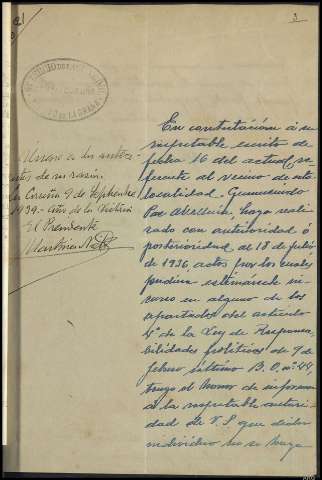 3
Únase a los antece-
dentes de su razón.
La Coruña 9 de Septiembre
1939 - Año de la Victoria
El Presidente
En contestación á su
respetable escrito de
fecha 16 del actual, re-
ferente al vecino de esta
localidad, Gumersindo
Paz, haya reali-
zado con anterioridad ó
posterioridad, al 18 de Julio
de 1936, actos por los cuales
pudiera estimársele in-
curso en alguno de los
apartados del artículo
4º de la Ley de Responsa-
bilidades políticas de 9 de
febrero último B.O. nº 44,
tengo el honor de informar
á la respetable autori-
dad de V.S. que dicho
individuo no se haya